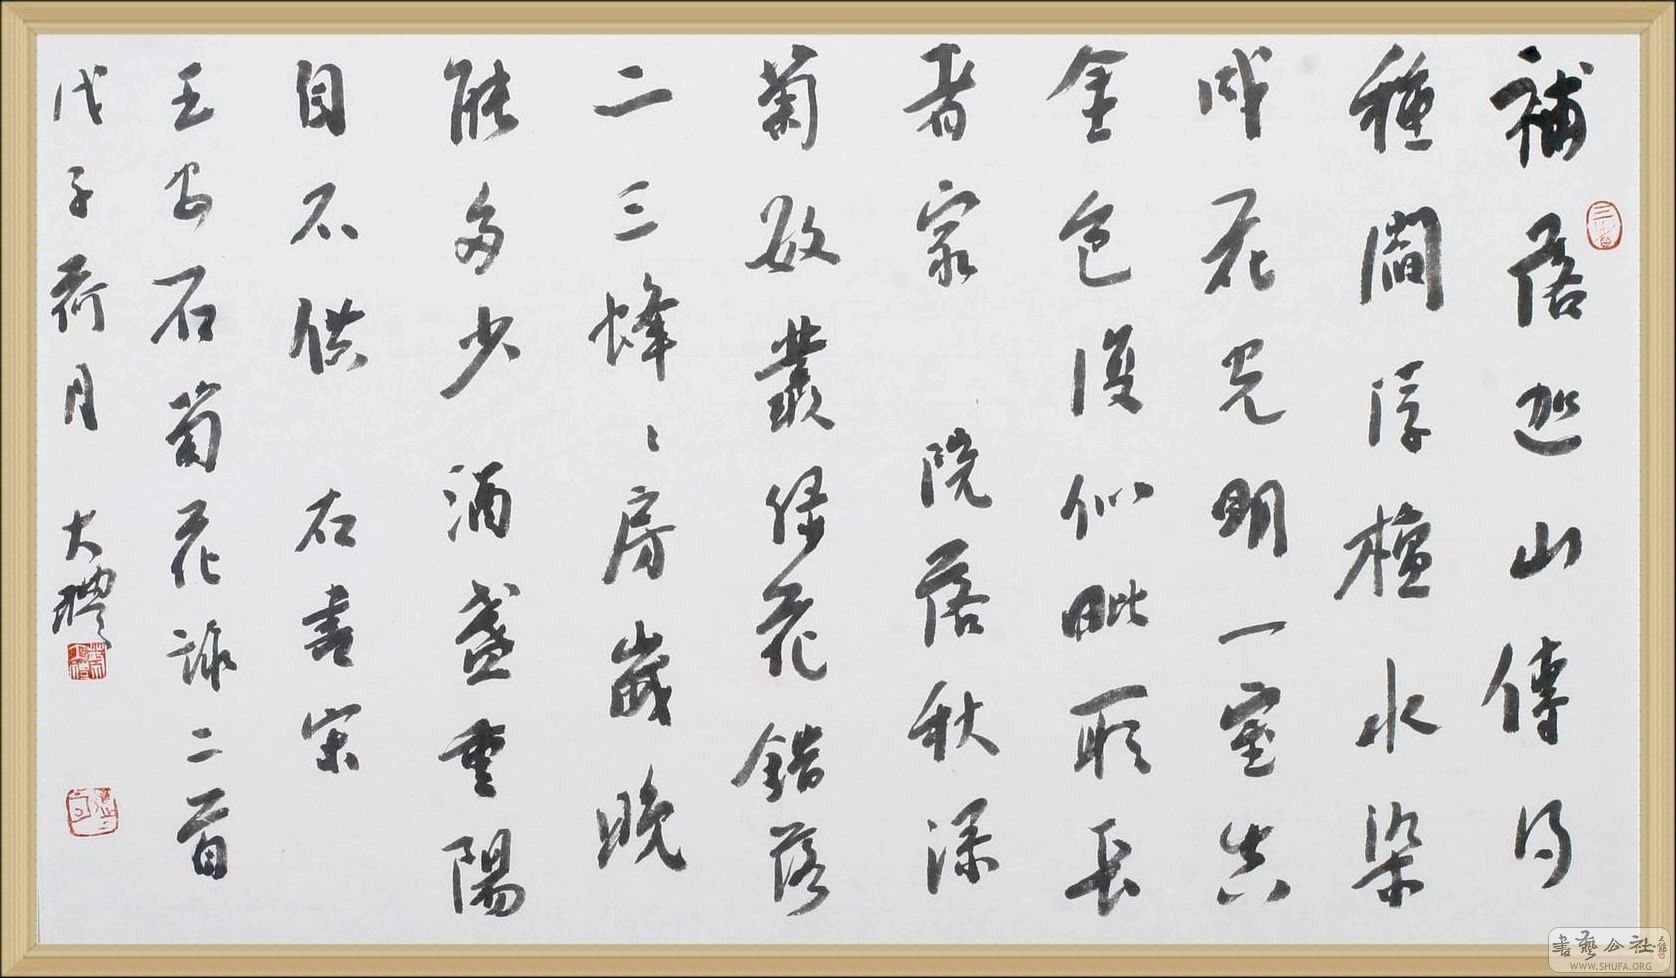 補落迦山傳得
種閻浮檀水染
成花光明一室真
金色復似毗耶長
者家 院落秋深
菊數叢緣花錯落
二三蜂〻房歲晚
能多少 酒盞重陽
自不供 右書宋
王安石菊花詠二首
戊子荷月 大禮
書藝公社
WWW.SHUFA.ORG